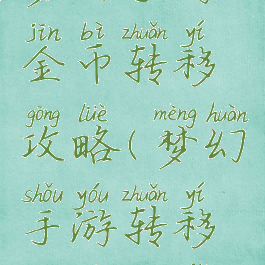 jīn bì zhuǎn yí
金币转移
gōng lüè mèng huàn
攻略(梦幻
shǒu yóu zhuǎn yí
手游转移